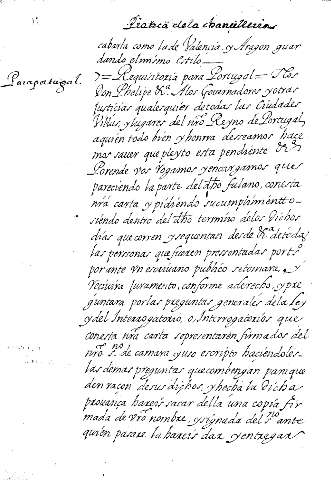 Pratica de la chancilleria
cabarla como la de Valencia y Aragon guar
dando el mismo estilo
Para portugal. = Requisitoria para Portugal = Nos
Don Phelipe &ª. A los Governadores y otras
Justicias qualesquier de todas las Ciudades
Villas, y lugares del nro Reyno de Portugal,
a quien todo bien y honrra deseamos hace
mos saver que pleyto esta pendiente &ª
Porende vos rogamos y encargamos que
pareciendo la parte del dho fulano, con esta
nra carta y pidiendo su cumplimiento
siendo dentro del dho termino de los dichos
dias que corren y se quentan desde &ª. de toda
las personas que fueren presentadas por tsº
por ante un escrivano publico se tomara y
recivira juramento, conforme a derecho, y pre
guntara por las preguntas generales de la ley
y del Interrogatorio, o, Interrogatorios que
con esta nra carta representaren firmados del
nro sº. de camara uso escripto haciendoles
las demas preguntas que combengan para que
den raçon de sus dichos, y hecha la dicha
provança hareis sacar della una copia fir
mada de vro nombre, y signada del sno ante
quien pasare la hareis dar y entregar